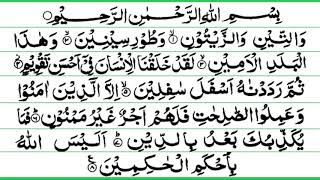 بِسْمِ اللهِ الرَّحْمٰنِ الرَّحِيْمِ
وَالتِّيْنِ وَالزَّيْتُوْنِ ۙ۱ وَطُوْرِ سِيْنِيْنَ ۙ۲ وَهٰذَا
الْبَلَدِ الْاَمِيْنِ ۙ۳ لَقَدْ خَلَقْنَا الْاِنْسَانَ فِىْۤ اَحْسَنِ تَقْوِيْمٍ ۴
ثُمَّ رَدَدْنٰهُ اَسْفَلَ سٰفِلِيْنَ ۙ۵ اِلَّا الَّذِيْنَ اٰمَنُوْا
وَعَمِلُوا الصّٰلِحٰتِ فَلَهُمْ اَجْرٌ غَيْرُ مَمْنُوْنٍ ۶ فَمَا
يُكَذِّبُكَ بَعْدُ بِالدِّيْنِ ۷ اَلَيْسَ اللهُ
بِاَحْكَمِ الْحٰكِمِيْنَ ۸